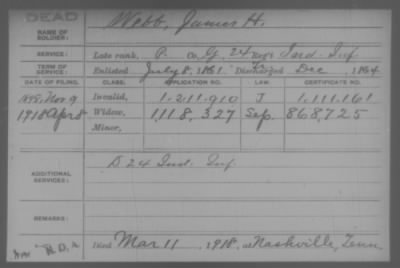 DEAD
NAME OF SOLDIER: Webb, James H.
SERVICE: Late rank, P. Co. G, 24 Reg't Ind. Inf.
TERM OF SERVICE: Enlisted July 8, 1861. Discharged Dec 1864
DATE OF FILING. CLASS. APPLICATION NO. LAW. CERTIFICATE NO.
1895, Nov 9 Invalid, 1.211.910 J 1.111.161
1918 Apr 8 Widow, 1118,327 Sep. 868,725
Minor,
ADDITIONAL SERVICES: D 24 Ind. Inf.
REMARKS:
Died Mar 11, 1918, at Nashville, Tenn